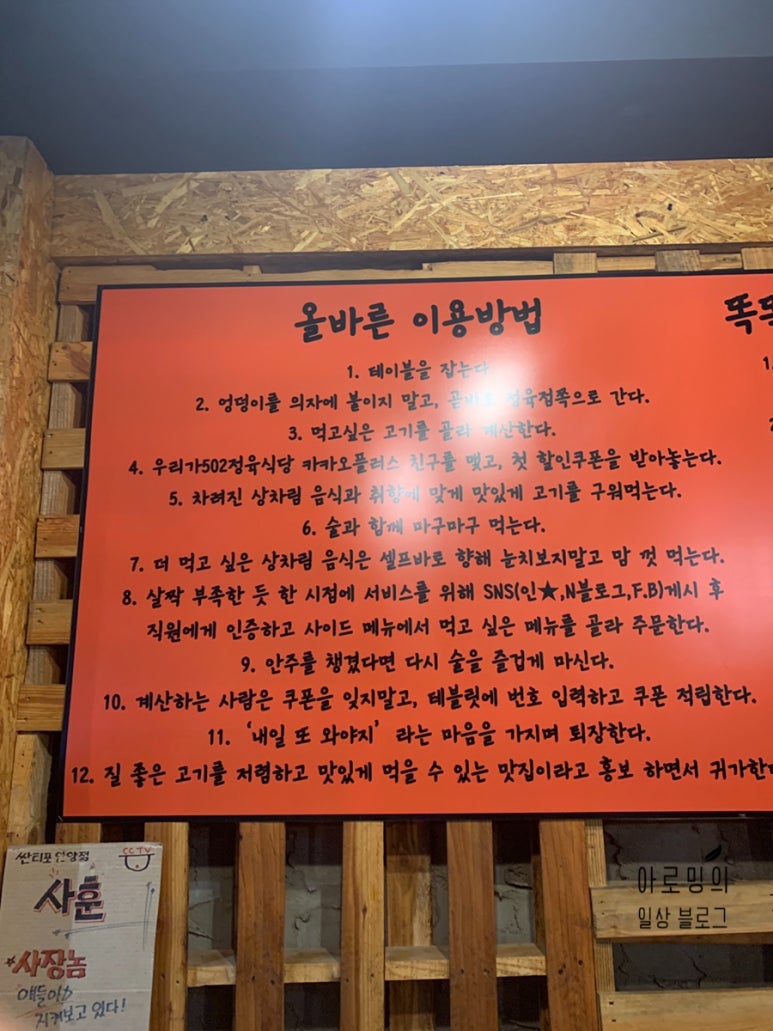 올바른 이용방법
1. 테이블을 잡는다
2. 엉덩이를 의자에 붙이지 말고, 곧바로 정육점쪽으로 간다.
3. 먹고싶은 고기를 골라 계산한다.
4. 우리가502정육식당 카카오플러스 친구를 맺고, 첫 할인쿠폰을 받아놓는다.
5. 차려진 상차림 음식과 취향에 맞게 맛있게 고기를 구워먹는다.
6. 술과 함께 마구마구 먹는다.
7. 더 먹고 싶은 상차림 음식은 셀프바로 향해 눈치보지말고 맘 껏 먹는다.
8. 살짝 부족한 듯 한 시점에 서비스를 위해 SNS(인★,N블로그,F.B)게시 후
직원에게 인증하고 사이드 메뉴에서 먹고 싶은 메뉴를 골라 주문한다.
9. 안주를 챙겼다면 다시 술을 즐겁게 마신다.
10. 계산하는 사람은 쿠폰을 잊지말고, 테블릿에 번호 입력하고 쿠폰 적립한다.
11. '내일 또 와야지' 라는 마음을 가지며 퇴장한다.
12. 질 좋은 고기를 저렴하고 맛있게 먹을 수 있는 맛집이라고 홍보 하면서 귀가한
똑
1.
CCTV
사훈
★사장놈
얘들아
지켜보고 있다!
아로밍의
일상 블로그